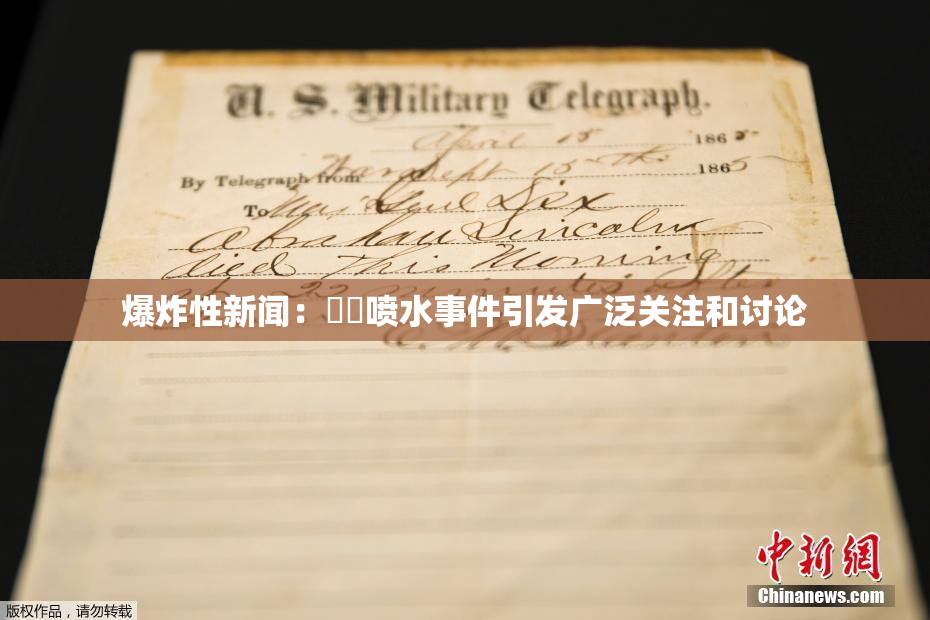 U. S. Military Telegraph.
April 15 1865
By Telegraph from War Dept 15th 1865
To Maj Genl Dix
Abraham Lincoln
died This Morning
at 22 minutes after
爆炸性新闻：▯▯喷水事件引发广泛关注和讨论
E. M. Stanton
中新网
Chinanews.com
版权作品，请勿转载